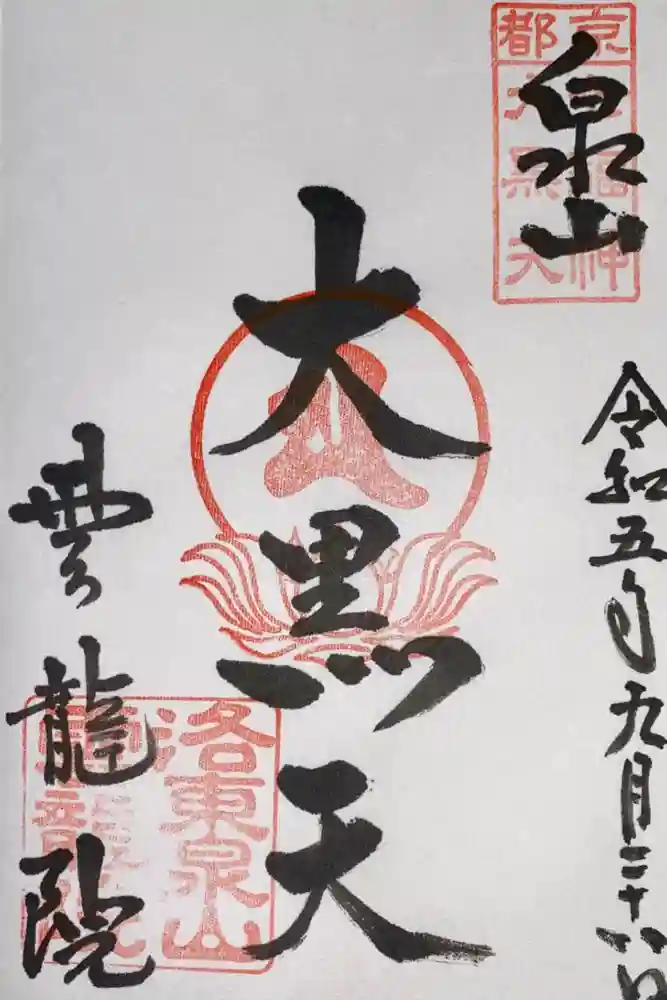 泉山
令和五年九月二十八日
大黒天
雲龍院
京都
大黒天
洛東泉山